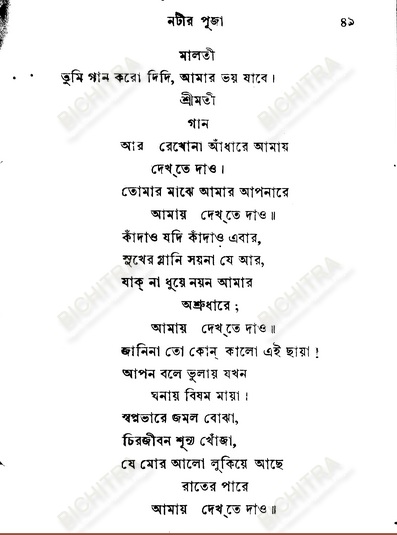 নটীর পূজা ৪৯
মালতী
তুমি গান করো দিদি, আমার ভয় যাবে।
শ্রীমতী
গান
আর রেখোনা আঁধারে আমায়
দেখ্‌তে দাও।
তোমার মাঝে আমার আপনারে
আমায় দেখ্‌তে দাও॥
কাঁদাও যদি কাঁদাও এবার,
সুখের গ্লানি সয়না যে আর,
যাক্‌ না ধুয়ে নয়ন আমার
অশ্রুধারে;
আমায় দেখ্‌তে দাও॥
জানিনা তো কোন্‌ কালো এই ছায়া!
আপন বলে ভুলায় যখন
ঘনায় বিষম মায়া!
স্বপ্নভারে জমল বোঝা,
চিরজীবন শূন্য খোঁজা,
যে মোর আলো লুকিয়ে আছে
রাতের পারে
আমায় দেখ্‌তে দাও॥
BICHITRA
BICHITRA
BICHITRA
BICHITRA
BICHITRA
BICHITRA